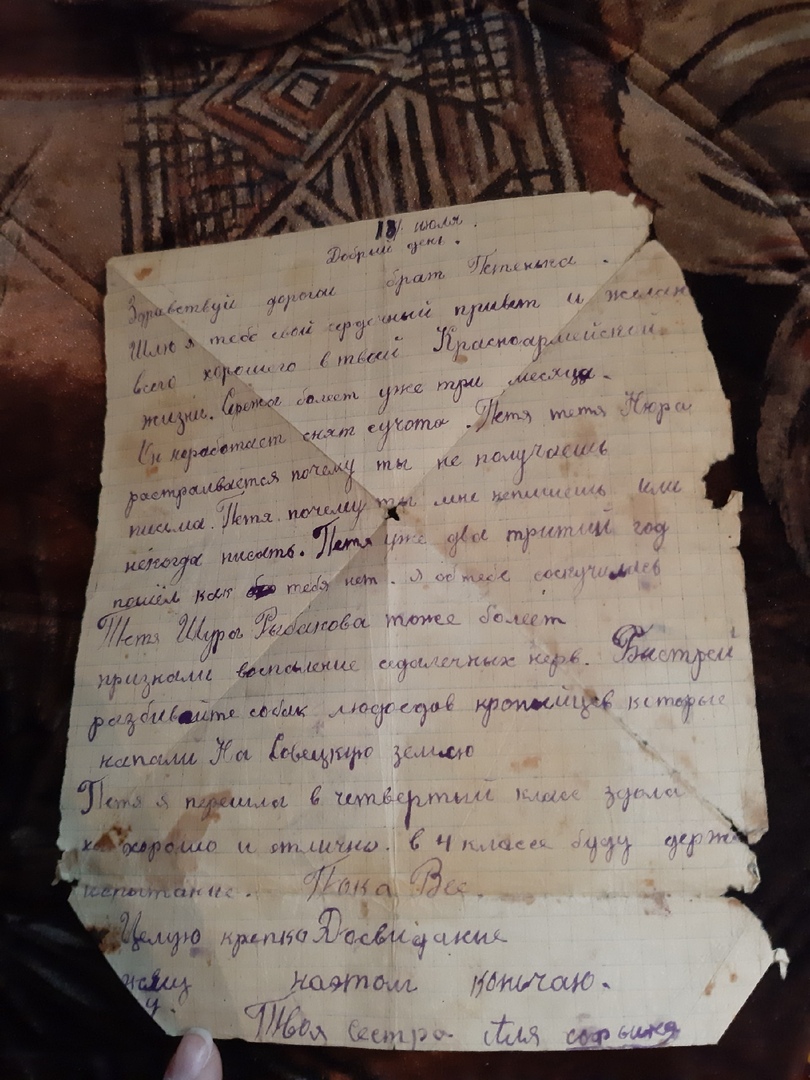 13 июля.
Добрый день.
Здравствуй дорогой брат Петенька.
Шлю я тебе свой сердечный привет и желан
всего хорошего в твоей Красноармейской
жизни. Сережа болеет уже три месяца.
Он неработает снят сучота. Петя тетя Нюра
растраевается почему ты не получаешь
письма. Петя почему ты мне непишешь или
некогда писать. Петя уже два тритий год
пошёл как тебя нет. Я об тебе соскучилась
Петя Шура Рыбакова тоже болеет
признали воспаление седалечных нерв. Быстрей
разбивайте собак людоедов которые
напали На Совецкую землю
Петя я перешла в четвертый класс здала
хорошо и отлично. в 4 классе буду держ
испытание. Пока Все.
Целую крепка Досвидание
наэтом кончаю.
Твоя сестра Аля